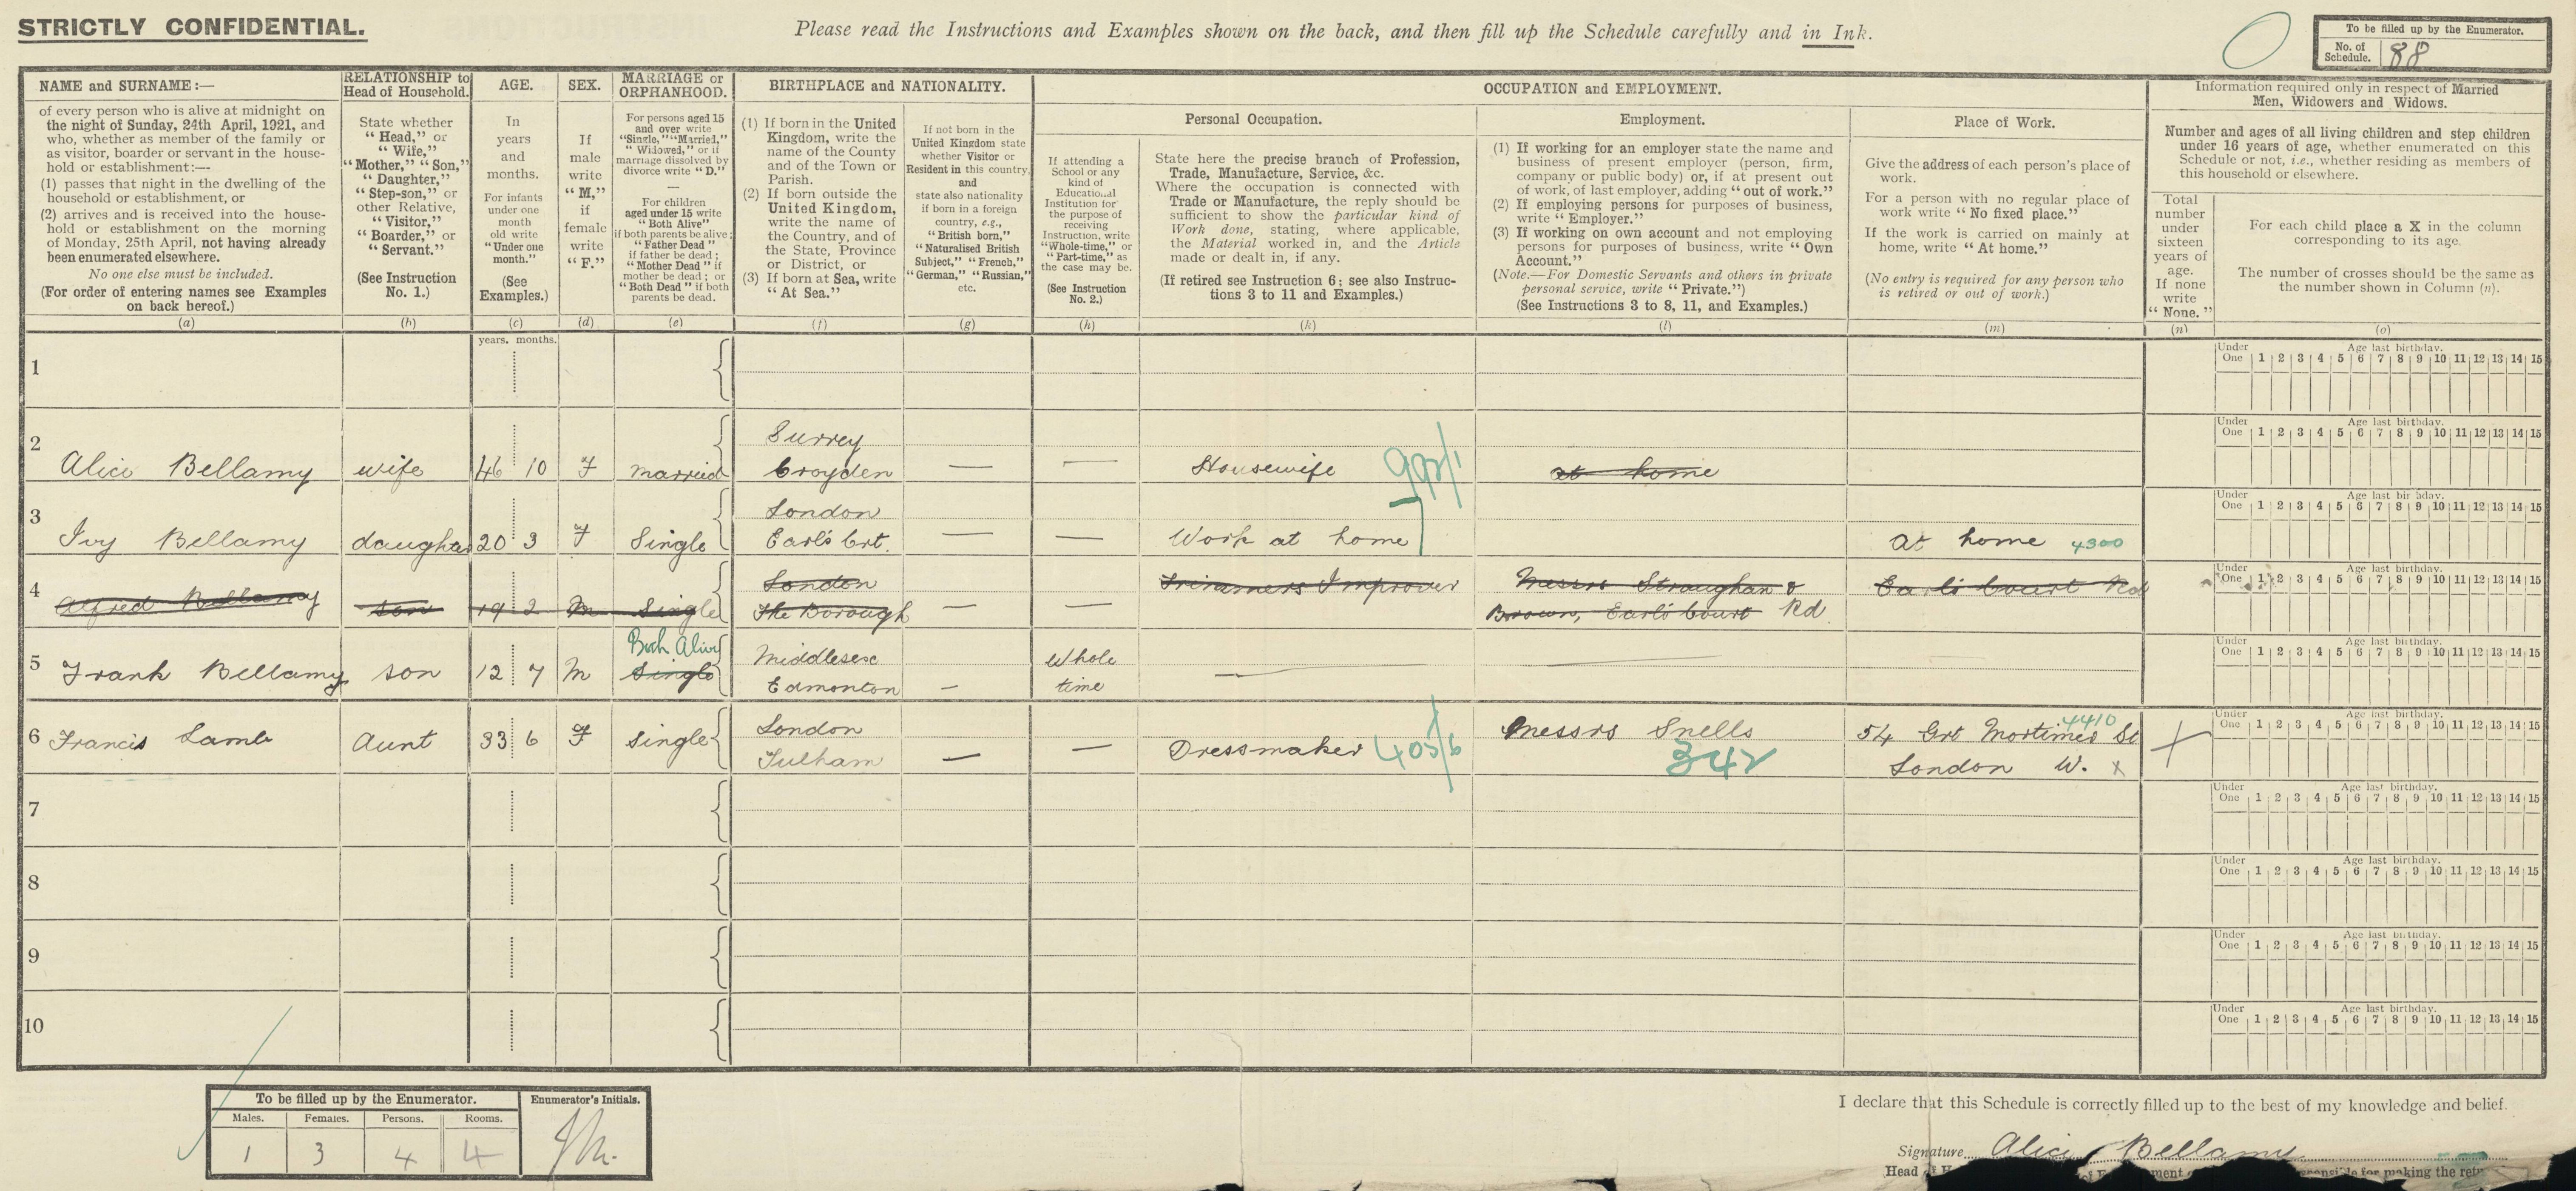 STRICTLY CONFIDENTIAL.
Please read the Instructions and Examples shown on the back, and then fill up the Schedule carefully and in Ink.
To be filled up by the Enumerator.
No. of Schedule. 88
NAME and SURNAME:—
of every person who is alive at midnight on
the night of Sunday, 24th April, 1921, and
who, whether as member of the family or
as visitor, boarder or servant in the house-
hold or establishment:—
(1) passes that night in the dwelling of the
household or establishment, or
(2) arrives and is received into the house-
hold or establishment on the morning
of Monday, 25th April, not having already
been enumerated elsewhere.
No one else must be included.
(For order of entering names see Examples
on back hereof.)
(a)
RELATIONSHIP to
Head of Household.
State whether
"Head," or
"Wife,"
"Mother," "Son,"
"Daughter,"
"Step-son," or
other Relative,
"Visitor,"
"Boarder," or
"Servant."
(See Instruction
No. 1.)
(b)
AGE.
In
years
and
months.
For infants
under one
month
old write
"Under one
month."
(See
Examples.)
(c)
SEX.
If
male
write
"M,"
if
female
write
"F."
(d)
MARRIAGE or
ORPHANHOOD.
For persons aged 15
and over write
"Single," "Married,"
"Widowed," or if
marriage dissolved by
divorce write "D."
—
For children
aged under 15 write
"Both Alive"
if both parents be alive;
"Father Dead"
if father be dead;
"Mother Dead" if
mother be dead; or
"Both Dead" if both
parents be dead.
(e)
BIRTHPLACE and NATIONALITY.
(1) If born in the United
Kingdom, write the
name of the County
and of the Town or
Parish.
(2) If born outside the
United Kingdom,
write the name of
the Country, and of
the State, Province
or District, or
(3) If born at Sea, write
"At Sea."
(f)
If not born in the
United Kingdom state
whether Visitor or
Resident in this country,
and
state also nationality
if born in a foreign
country, e.g.,
"British born,"
"Naturalised British
Subject," "French,"
"German," "Russian,"
etc.
(g)
OCCUPATION and EMPLOYMENT.
If attending a
School or any
kind of
Educational
Institution for
the purpose of
receiving
Instruction, write
"Whole-time," or
"Part-time," as
the case may be.
(See Instruction
No. 2.)
(h)
Personal Occupation.
State here the precise branch of Profession,
Trade, Manufacture, Service, &c.
Where the occupation is connected with
Trade or Manufacture, the reply should be
sufficient to show the particular kind of
Work done, stating, where applicable,
the Material worked in, and the Article
made or dealt in, if any.
(If retired see Instruction 6; see also Instruc-
tions 3 to 11 and Examples.)
(k)
Employment.
(1) If working for an employer state the name and
business of present employer (person, firm,
company or public body) or, if at present out
of work, of last employer, adding "out of work."
(2) If employing persons for purposes of business,
write "Employer."
(3) If working on own account and not employing
persons for purposes of business, write "Own
Account."
(Note.—For Domestic Servants and others in private
personal service, write "Private.")
(See Instructions 3 to 8, 11, and Examples.)
(l)
Place of Work.
Give the address of each person's place of
work.
For a person with no regular place of
work write "No fixed place."
If the work is carried on mainly at
home, write "At home."
(No entry is required for any person who
is retired or out of work.)
(m)
Information required only in respect of Married
Men, Widowers and Widows.
Number and ages of all living children and step children
under 16 years of age, whether enumerated on this
Schedule or not, i.e., whether residing as members of
this household or elsewhere.
Total
number
under
sixteen
years of
age.
If none
write
"None."
(n)
For each child place a X in the column
corresponding to its age.
The number of crosses should be the same as
the number shown in Column (n).
(o)
years. months.
1
Under One Age last birthday. 1 2 3 4 5 6 7 8 9 10 11 12 13 14 15
2 Alice Bellamy wife 46 10 F married Surrey Croyden — — Housewife 997/1 at home
Under One Age last birthday. 1 2 3 4 5 6 7 8 9 10 11 12 13 14 15
3 Ivy Bellamy daughter 20 3 F Single London Earl's Crt. — — Work at home At home 4300
Under One Age last birthday. 1 2 3 4 5 6 7 8 9 10 11 12 13 14 15
4 Alfred Bellamy son 19 2 M Single London The Borough — — Trimmers Improver Messrs Straughan & Brown, Earl's Court Rd. Earl's Court Rd
Under One Age last birthday. 1 2 3 4 5 6 7 8 9 10 11 12 13 14 15
5 Frank Bellamy son 12 7 M Both Alive Single Middlesex Edmonton — Whole time —
Under One Age last birthday. 1 2 3 4 5 6 7 8 9 10 11 12 13 14 15
6 Francis Lamb Aunt 33 6 F Single London Fulham — — Dressmaker 405/6 Messrs Snells 342 54 Grt Mortimer St London W. 4410 X
Under One Age last birthday. 1 2 3 4 5 6 7 8 9 10 11 12 13 14 15
7
Under One Age last birthday. 1 2 3 4 5 6 7 8 9 10 11 12 13 14 15
8
Under One Age last birthday. 1 2 3 4 5 6 7 8 9 10 11 12 13 14 15
9
Under One Age last birthday. 1 2 3 4 5 6 7 8 9 10 11 12 13 14 15
10
Under One Age last birthday. 1 2 3 4 5 6 7 8 9 10 11 12 13 14 15
To be filled up by the Enumerator.
Males. Females. Persons. Rooms.
1 3 4 4
Enumerator's Initials.
I declare that this Schedule is correctly filled up to the best of my knowledge and belief.
Signature Alice Bellamy
Head of
for making the